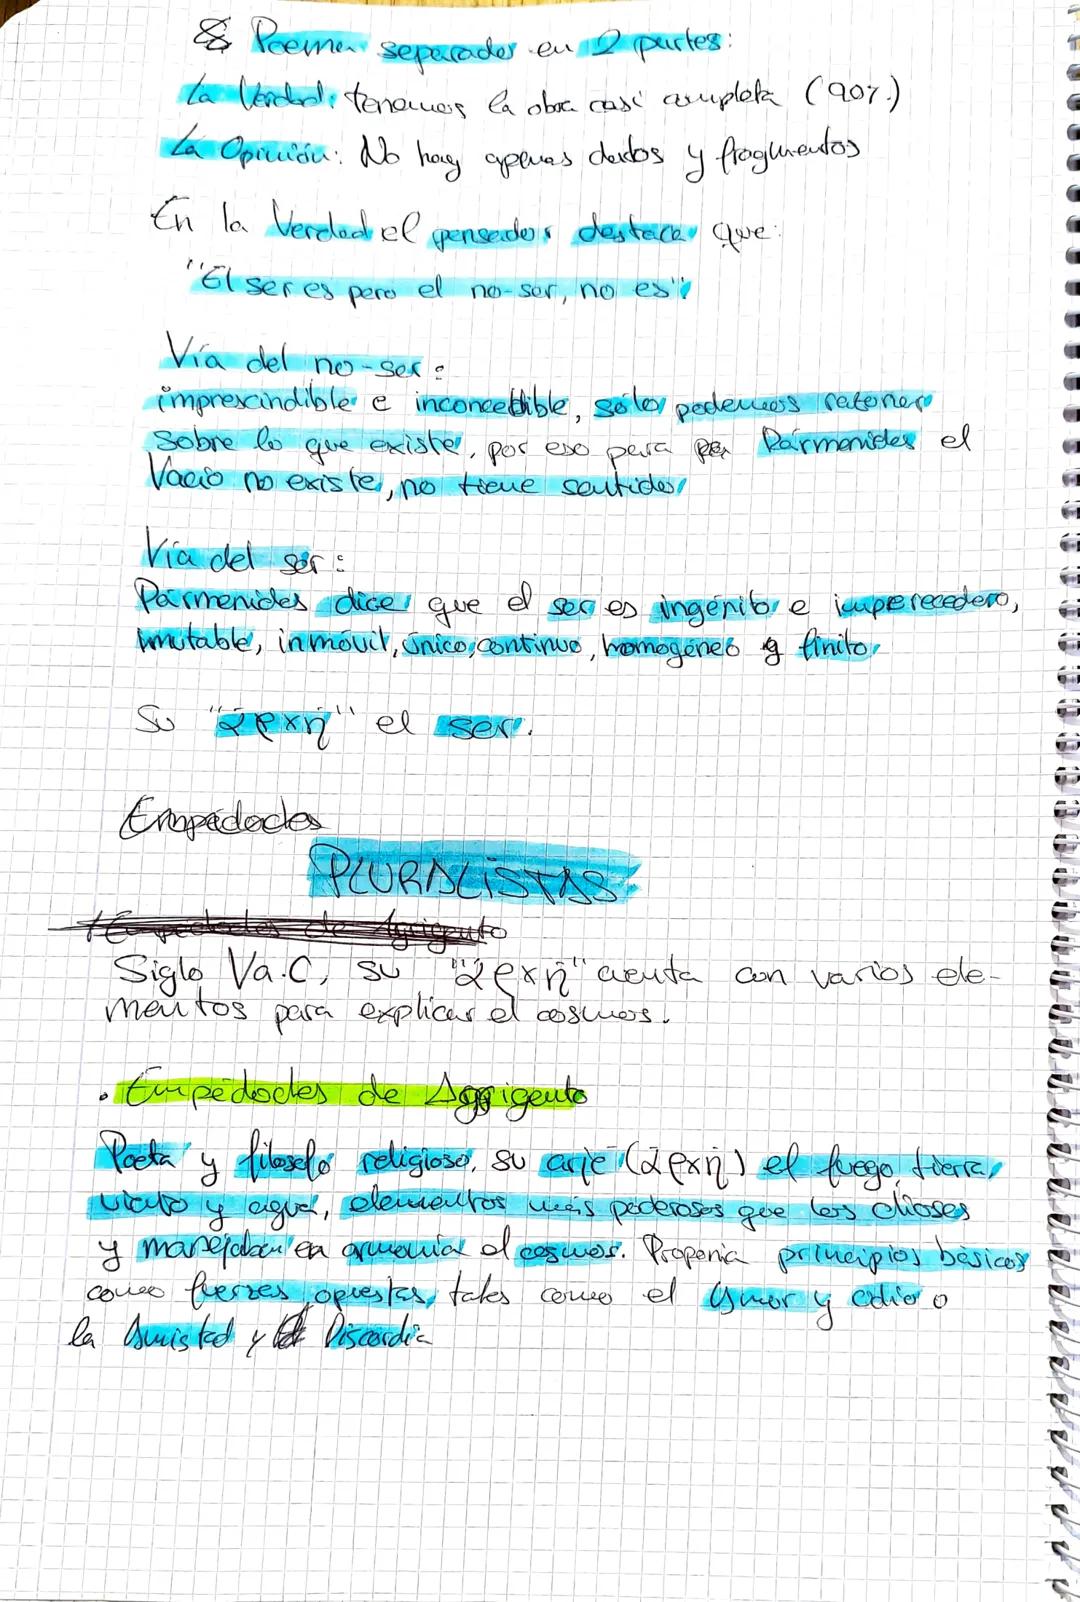 Poema separados en 2 partes:
La Verdad: tenemos la obra casi completa (90%.)
La Opinión: No hay apenas datos y fragmentos
En la Verdad el pensador destaca que:
"El ser es pero el no-ser, no es"
Vía del no-ser:
imprescindible e inconcebible, sólo podemos razonar
sobre lo que existe, por eso para Parmenides el
Vacio no existe, no tiene sentido
Vía del ser:
Parmenides dice que el ser es ingénito e imperecedero,
inmutable, inmóvil, único, continuo, homogéneo y finito
Su "ἀρχή" el ser.
Empédocles
PLURALISTAS
Empedocles de Agrigento
Siglo V a.C, su "ἀρχή" cuenta con varios ele-
mentos para explicar el cosmos.
• Empédocles de Agrigento
Poeta y filosofo religioso, su arjé (ἀρχή) el fuego, tierra,
viento y agua, elementos más poderosos que los dioses
y manejaban en armonía el cosmos. Proponia principios básicos
como fuerzas opuestas, tales como el Amor y odio o
la Amistad y Discordia